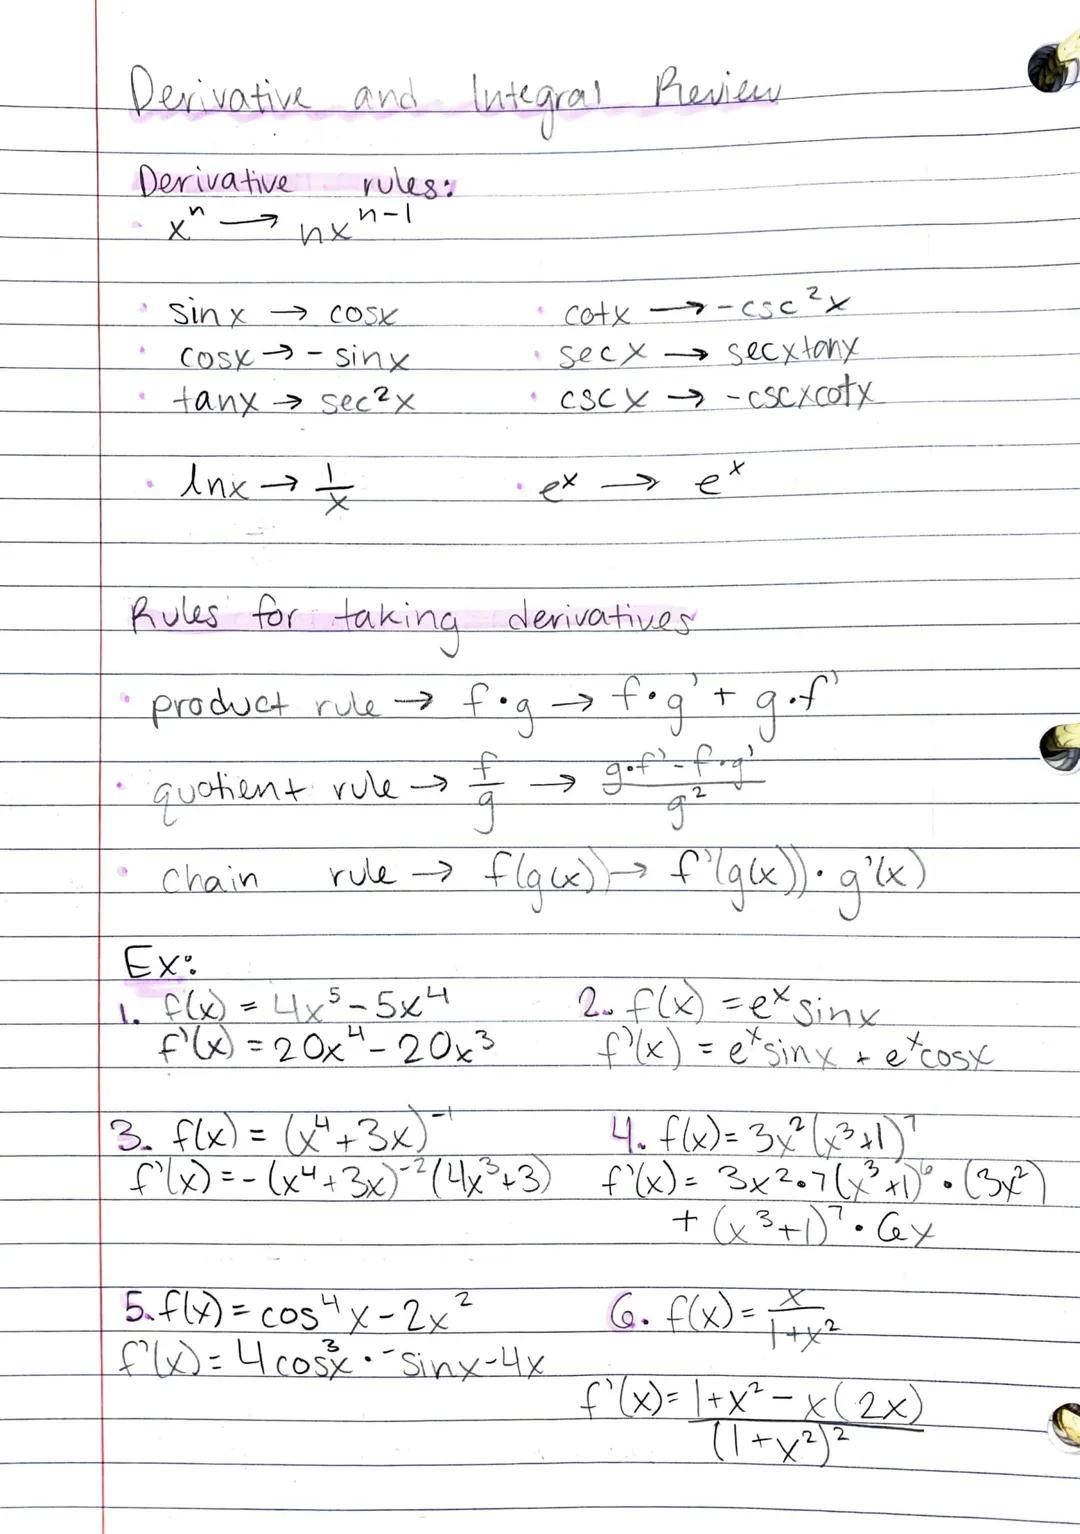 Derivative and Integral Review
Derivative rules:
• xⁿ → nxⁿ⁻¹
• sinx → cosx
• cotx → -csc²x
• cosx → - sinx
• secx → secxtanx
• tanx → sec²x
• cscx → -cscxcotx
• lnx → 1/x
• eˣ → eˣ
Rules for taking derivatives
• product rule → f•g → f•g' + g•f'
• quotient rule → f/g → g•f'-f•g'/g²
• chain rule → f(g(x)) → f'(g(x))•g'(x)
Ex:
1. f(x) = 4x⁵-5x⁴
f'(x) = 20x⁴-20x³
2. f(x) = eˣsinx
f'(x) = eˣsinx + eˣcosx
3. f(x) = (x⁴+3x)⁻¹
f'(x) = -(x⁴+3x)⁻²(4x³+3)
4. f(x) = 3x²(x³+1)⁷
f'(x) = 3x²•7(x³+1)⁶•(3x²)
+ (x³+1)⁷•6x
5. f(x) = cos⁴x-2x²
f'(x) = 4cos³x•-sinx-4x
6. f(x) = x/1+x²
f'(x) = 1+x²-x(2x)/(1+x²)²